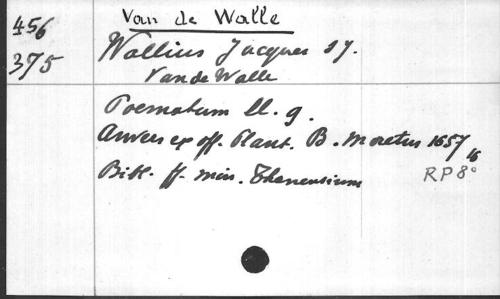 Van de Walle
456
Wallius Jacques SJ.
375
Van de Walle
Poematum ll. 9.
Anvers ex off. Plant. B. Moretus 1657
16
RP 8°
Bibl. ff. min. Thenensium